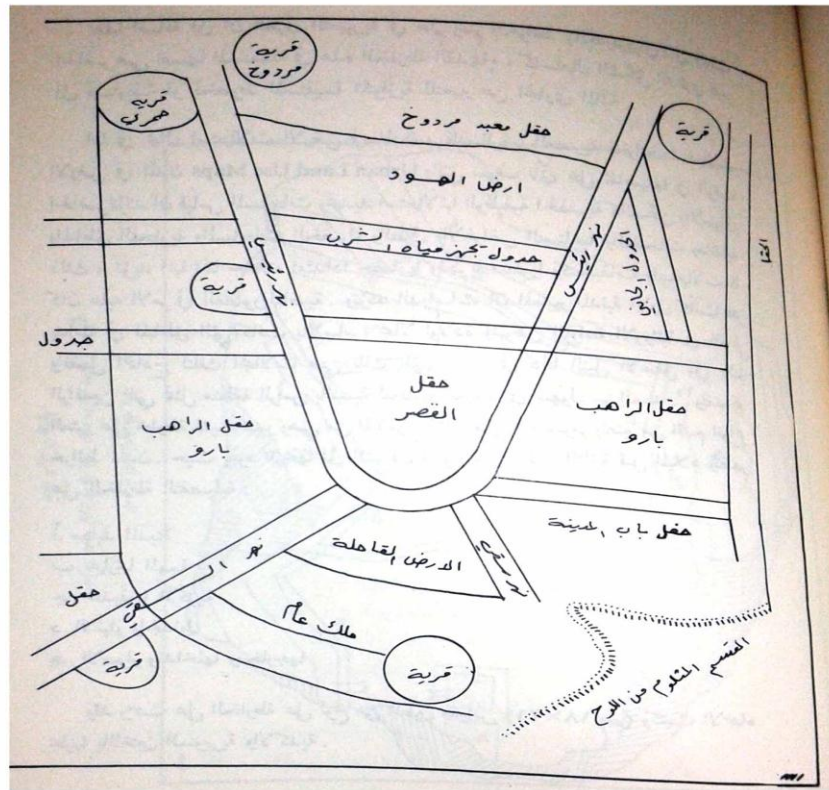 قرية
مردوخ
قرية
حمري
قرية
حقل معبد مردوخ
ارض الهود
جدول تجهز مياه الشرب
قرية
جدول
حقل
القصر
حقل الراهب
بارو
حقل الراهب
بارو
حقل باب المدينة
الارض القاحلة
نهر سقي
نهر الـ
سقي
حقل
ملك عام
قرية
قرية
القسم المثلوم من اللوح